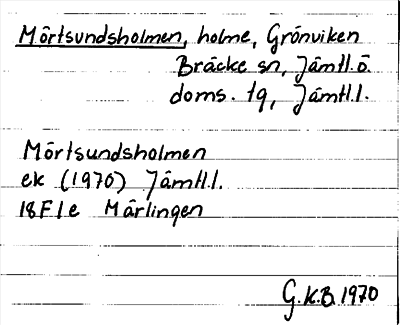 Mörtsundsholmen, holme, Grönviken
Bräcke sn, Jämtl.ö.
doms. tg, Jämtl.l.
Mörtsundsholmen
ek (1970) Jämtl.l.
18F1e Mårlingen
G.K.B. 1970